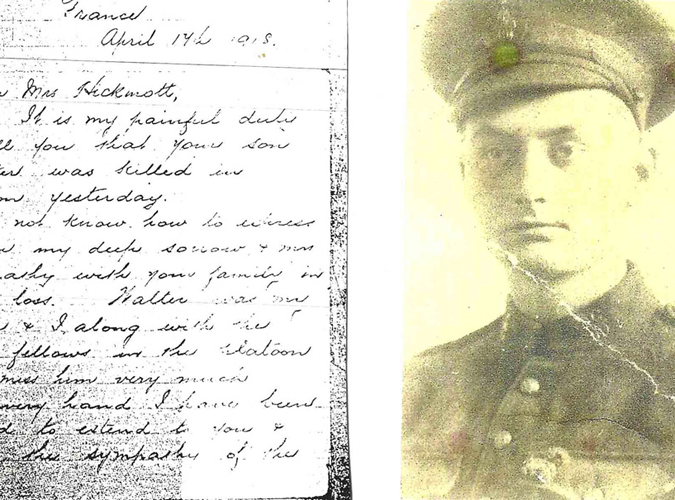 France
April 14th 1918.
Mrs Hickmott,
It is my painful duty
you that your son
was killed in
yesterday.
not know how to express
my deep sorrow & my
with your family in
loss. Walter was my
& I along with the
fellows in the Platoon
miss him very much
hand I have been
to extend to you &
the sympathy of the